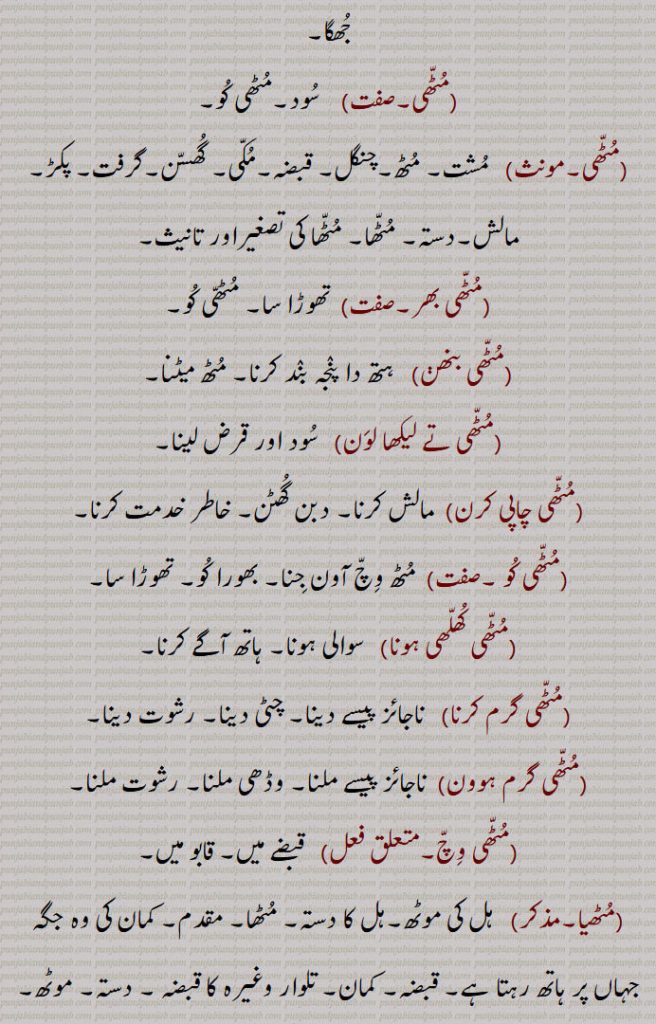 جُھگا۔
(مُٹّھی۔صفت) سُود۔مُٹھی کُو۔
(مُٹّھی۔مونث) مُشت۔ مُٹھ۔چنگل۔ قبضہ۔مُکّی۔ گُھسّن۔گرفت۔ پکڑ۔
مالش۔دستہ۔ مُٹّھا۔ مُٹّھا کی تصغیر اور تانیث۔
(مُٹّھی بھر۔صفت) تھوڑا سا۔ مُٹھّی کُو۔
(مُٹّھی بنھن) ہتھ دا پنٛجہ بنٛد کرنا۔ مُٹھ میٹنا۔
(مُٹّھی تے لیکھا لوَن) سُود اور قرض لینا۔
(مُٹّھی چاپی کرن) مالش کرنا۔ دبن گُھٹن۔ خاطر خدمت کرنا۔
(مُٹّھی کُو ۔صفت) مُٹھ وِچّ آون جِنا۔ بھورا کُو۔ تھوڑا سا۔
(مُٹّھی کُھلّھی ہونا) سوالی ہونا۔ ہاتھ آگے کرنا۔
(مُٹّھی گرم کرنا) ناجائز پیسے دینا۔ چٹی دینا۔ رشوت دینا۔
(مُٹّھی گرم ہوون) ناجائز پیسے ملنا۔ وڈھی ملنا۔ رشوت ملنا۔
(مُٹّھی وِچّ۔متعلق فعل) قبضے میں۔ قابو میں۔
(مُٹھیا۔مذکر) ہل کی موٹھ۔ہل کا دستہ۔ مُٹھا۔ مقدم۔ کمان کی وہ جگہ
جہاں پر ہاتھ رہتا ہے۔ قبضہ۔ کمان۔ تلوار وغیرہ کا قبضہ ۔ دستہ۔ موٹھ۔